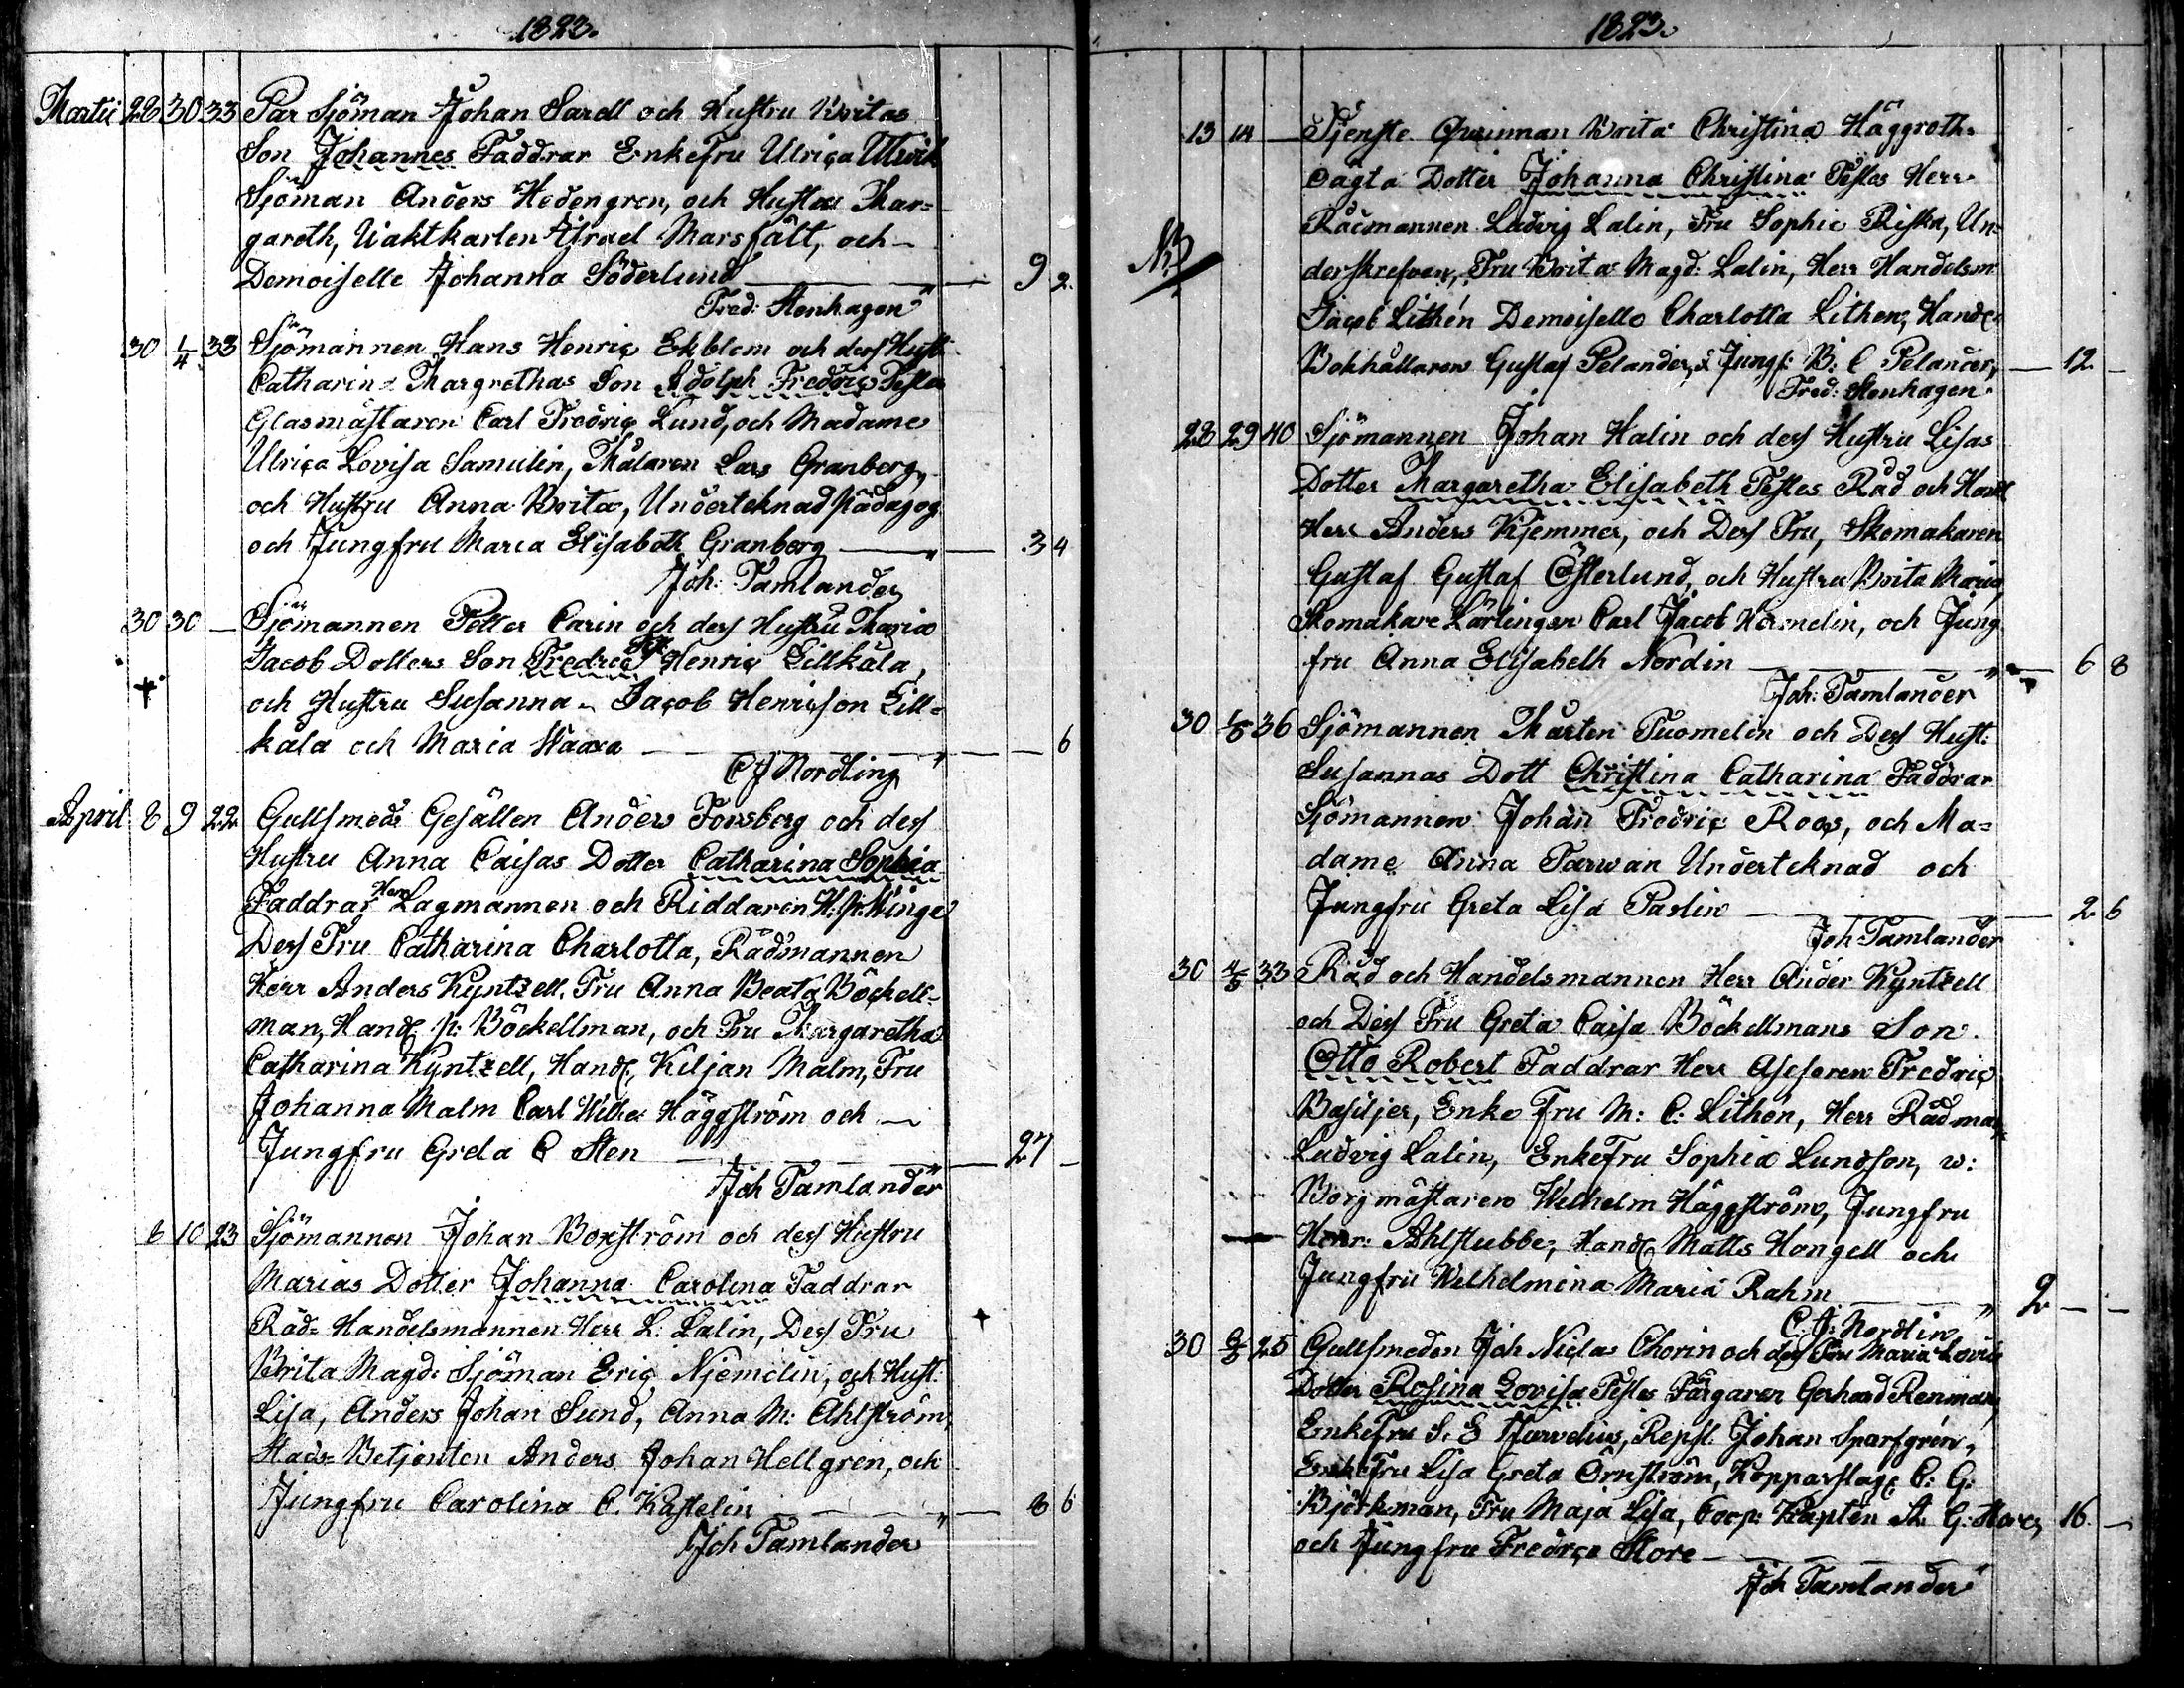 1823.
Martii 28 30 33 Par Sjöman Johan Sardl och Hustru Britas
Son Johannes Faddrar Enkefru Ulrica
Sjöman Anders Hedengren, och Hustru Mar=
gareth, Vaktkarlen Israel Marsfält, och
Demoiselle Johanna Söderlund 9 2.
Fred: Stenhagen
30 1/4 33 Sjömannen Hans Henric Ekblom och dess Hust:
Catharina Margrethas Son Adolph Fredric Testes
Glasmästaren Carl Fredric Lund, och Madame
Ulrica Lovisa Samulin, Målaren Lars Granberg,
och Hustru Anna Brita, Underteknad Pädagog
och Jungfru Maria Elisabeth Granberg 3 4
Joh: Tamlander
30 30 — Sjömannen Petter Carin och dess Hustru Maria
Jacob Dotters Son Fredric Henric Lillkåla,
och Hustru Susanna. Jacob Henricson Lill=
kåla och Maria Waara 6
C J Nordling
April 8 9 22 Gullsmeds Gesällen Anders Forsberg och dess
Hustru Anna Caisas Dotter Catharina Sophia
Faddrar Herr Lagmannen och Riddaren H. Winge
Dess Fru Catharina Charlotta, Rådmannen
Herr Anders Kyntzell, Fru Anna Beata Böckell=
man, Handl: P: Böckellman, och Fru Margaretha
Catharina Kyntzell, Handl: Kiljan Malm, Fru
Johanna Malm Carl Wilhe: Häggström och
Jungfru Greta C Sten 27
Joh Tamlander
6 10 23 Sjömannen Johan Boxström och dess Hustru
Marias Dotter Johanna Carolina Faddrar
Råd= Handelsmannen Herr L: Lalin, Dess Fru
Brita Magd: Sjöman Eric Njemelin, och Hust:
Lisa, Anders Johan Sund, Anna M: Ahlström,
Stads= Betjenten Anders Johan Hellgren, och
Jungfru Carolina C. Kastelin 8 6
Joh Tamlander
1823.
13 14 — Tjenste Qvinnan Brita Christina Häggroths
oägta Dotter Johanna Christina Testes Herr
Rådmannen Ludvig Lalin, Fru Sophie Riska, Un=
derskrefvan, Fru Brita Magd: Lalin, Herr Handelsm:
Jacob Lithén Demoiselle Charlotta Lithen, Handl:
Bokhållaren Gustaf Pelander, & Jungf: B: C Pelander, 12
Fred: Stenhagen
28 29 40 Sjömannen Johan Halin och dess Hustru Lisas
Dotter Margaretha Elisabeth Testes Råd och Handl
Herr Anders Kjemmer, och Dess Fru, Skomakaren
Gustaf Gustaf Österlund, och Hustru Brita Maria,
Skomakare Lärlingen Carl Jacob Hermelin, och Jung
fru Anna Elisabeth Nordin 6 8
Joh: Tamlander
30 1/5 36 Sjömannen Mårten Tuomelin och Dess Hust:
Susannas Dott Christina Catharina Faddrar
Sjömannen Johan Fredric Roos, och Ma=
dame Anna Tarwan Undertecknad och
Jungfru Greta Lisa Parlin 2 6
Joh Tamlander
30 4/5 33 Råd och Handelsmannen Herr Ander Kyntzell
och Dess Fru Greta Caisa Böckellmans Son
Otto Robert Faddrar Herr Assesoren Fredric
Basiljer, Enke Fru M: C: Lithén, Herr Rådman
Ludvig Lalin, Enkefru Sophia Lundson, v:
Borgmästaren Wilhelm Häggström, Jungfru
Henr: Ahlstubbe, Handl: Matts Hangell och
Jungfru Wilhelmina Maria Rahm 2 — —
C. J: Nordlin
30 25 Gullsmeden Joh Niclas Chorin och dess Fru Maria Lovis
Dotter Rosina Lovisa Testes Färgaren Gerhard Renman,
Enkefru S. E Harvelius, Repsl: Johan Sparfgrén,
Enkefru Lisa Greta Örnström, Kopparslag: C: G:
Björkman, Fru Maja Lisa, Coop: Kapten A. G: 16
och Jungfru Fredrica Store
Joh Tamlander